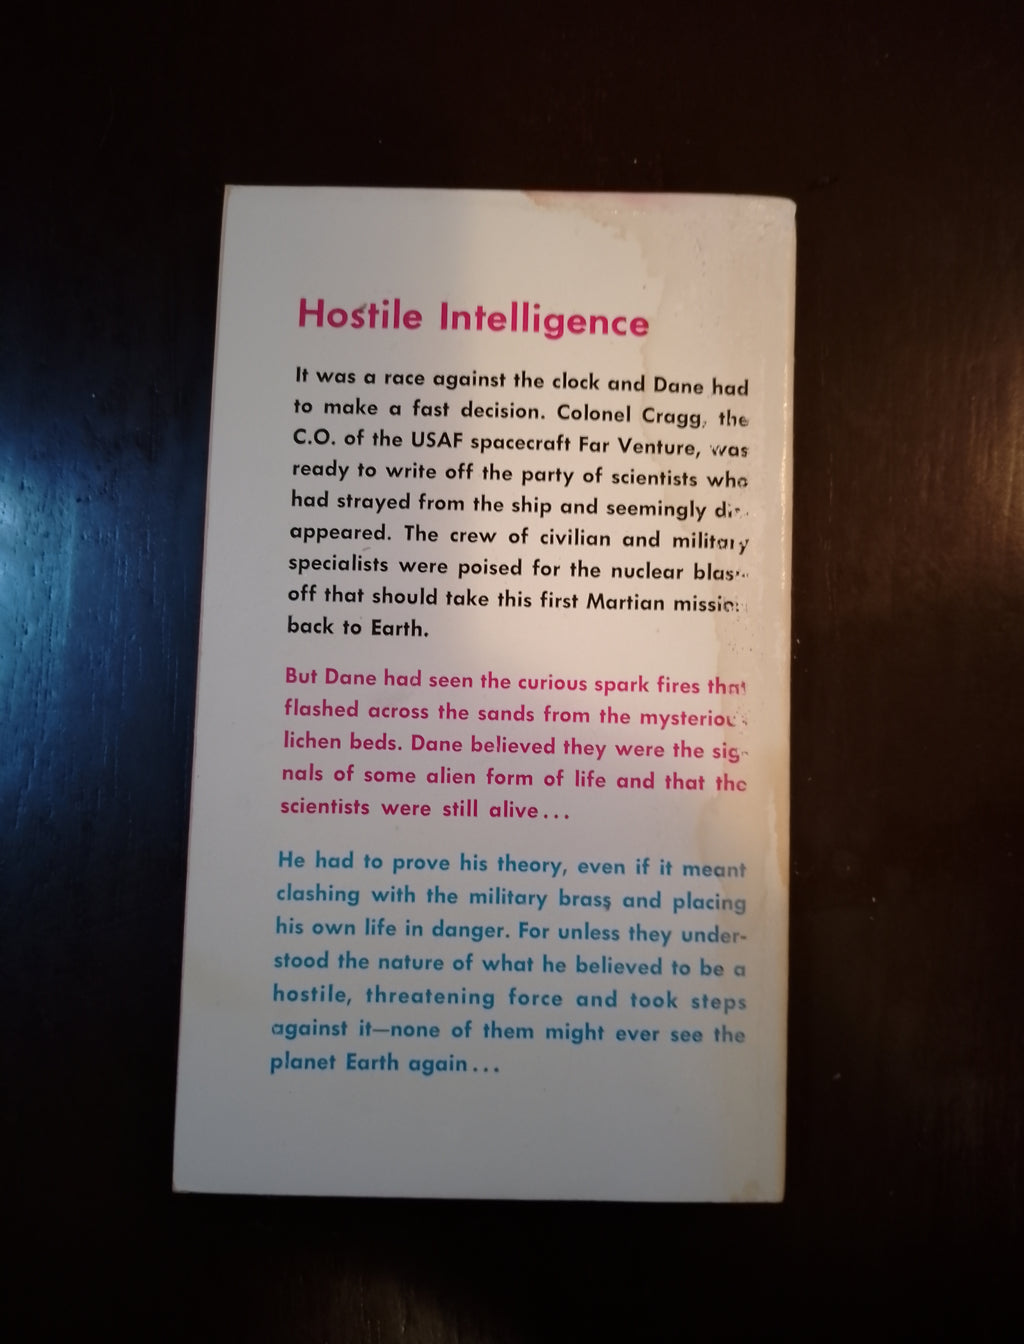 Hostile Intelligence
It was a race against the clock and Dane had
to make a fast decision. Colonel Cragg, the
C.O. of the USAF spacecraft Far Venture, was
ready to write off the party of scientists who
had strayed from the ship and seemingly
appeared. The crew of civilian and military
specialists were poised for the nuclear
off that should take this first Martian mission
back to Earth.
But Dane had seen the curious spark fires that
flashed across the sands from the mysterious
lichen beds. Dane believed they were the sig-
nals of some alien form of life and that the
scientists were still alive...
He had to prove his theory, even if it meant
clashing with the military brass and placing
his own life in danger. For unless they under-
stood the nature of what he believed to be a
hostile, threatening force and took steps
against it—none of them might ever see the
planet Earth again...